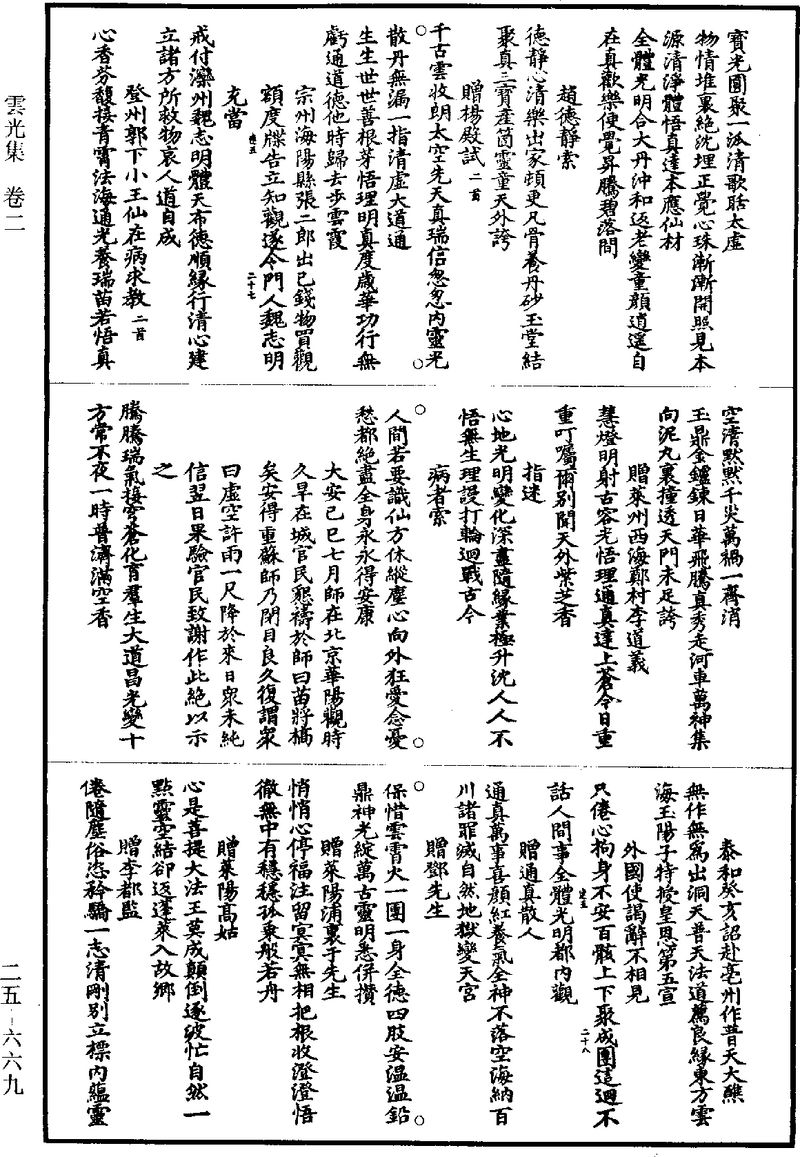 雲光集 卷二
二五-六六九
寶光團聚一派清歌聒太虛
物情堆裏絕沈埋正覺心珠漸漸開照見本
源清淨體悟真達本應仙材
全體光明合大丹沖和返老變童顏逍遥自
在真歡樂便覺昇騰碧落間
趙德靜索
德靜心清樂出家頓更凡骨養丹砂玉堂結
聚真三寶産箇靈童天外誇
贈楊殿試二首
千古雲收朗太空先天真瑞信怱怱内靈光
散丹無漏一指清虛大道通
生生世世善根芽悟理明真度歲華功行無
虧通道德他時歸去步雲霞
宗州海陽縣張二郎出己錢物買觀
額度牒告立知觀遂令門人魏志明
二十七
充當
戒付灤州魏志明體天布德順緣行清心建
立諸方所救物哀人道自成
登州郭下小王仙在病求教二首
心香芬馥接青霄法海通光養瑞苗若悟真
空清默默千災萬禍一齊消
玉鼎金鑪鍊日華飛騰真秀走河車萬神集
向泥丸裏撞透天門未足誇
贈萊州西海鄭村李道義
慧燈明射古容光悟理通真達上蒼今日重
重叮囑爾别聞天外紫芝香
指迷
心地光明變化深盡隨緣業極升沈人人不
悟無生理謾打輪迴戰古今
病者索
人間若要識仙方休縱塵心向外狂愛念憂
愁都絕盡全身永永得安康
大安己巳七月師在北京華陽觀時
久旱在城官民懇禱於師曰苗將槁
矣安得重蘇師乃閉目良久復謂衆
曰虛空許雨一尺降於來日衆未純
信翌日果驗官民致謝作此絕以示
之
騰騰瑞氣接穹蒼化育羣生大道昌光變十
方常不夜一時普濟滿空香
泰和癸亥詔赴亳州作普天大醮
無作無爲出洞天普天法道薦良緣東方雲
海玉陽子特授皇恩第五宣
外國使謁辭不相見
只倦心拘身不安百骸上下聚成團這迴不
二十八
話人間事全體光明都内觀
贈通真散人
通真萬事喜顏紅養氣全神不落空海納百
川諸罪滅自然地獄變天宮
贈鄧先生
保惜雲霄火一團一身全德四肢安温温鉛
鼎神光綻萬古靈明悉併攢
贈萊陽浦裏于先生
悄悄心停福注留冥冥無相把根收澄澄悟
徹無中有穩穩孤乘般若舟
贈萊陽高姑
心是菩提大法王莫成顛倒逐波忙自然一
點靈空結卻返蓬萊入故鄉
贈李都監
倦隨塵俗恣矜驕一志清剛别立標内蘊靈